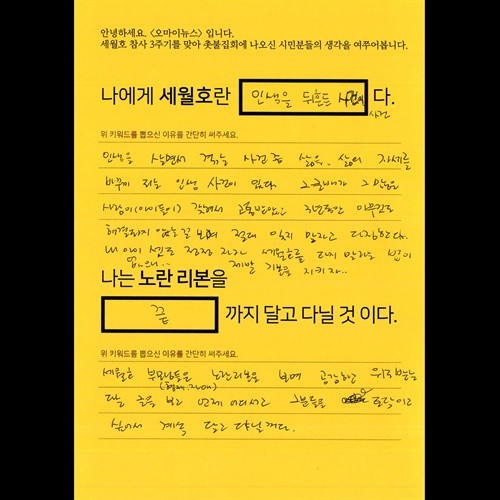 안녕하세요. <오마이뉴스> 입니다.
세월호 참사 3주기를 맞아 촛불집회에 나오신 시민분들의 생각을 여쭈어봅니다.
나에게 세월호란 인생을 뒤흔든 사건이다.
사건
위 키워드를 뽑으신 이유를 간단히 써주세요.
인생을 살면서 겪는 사건 중 삶을.. 삶의 자세를
바꾸게 되는 인생 사건이 있다. 그 많은
사람이(아이들이) 갇혀서 고통받았고 3년동안 아무것도
해결되지 않는 걸 보며 절대 잊지 말자고 다짐한다.
내 아이 셋도 점점 자라 세월호를 타지 말라는 법이
없으니.. 제발 기본을 지키자..
나는 노란 리본을
끝 까지 달고 다닐 것 이다.
위 키워드를 뽑으신 이유를 간단히 써주세요.
세월호 부모님들을 노란리본을 보며 공감하고 위로받는
(형제,자매)
다는 글을 보고 언제 어디서고 그분들을 토닥이고
싶어서 계속 달고 다닐꺼다.